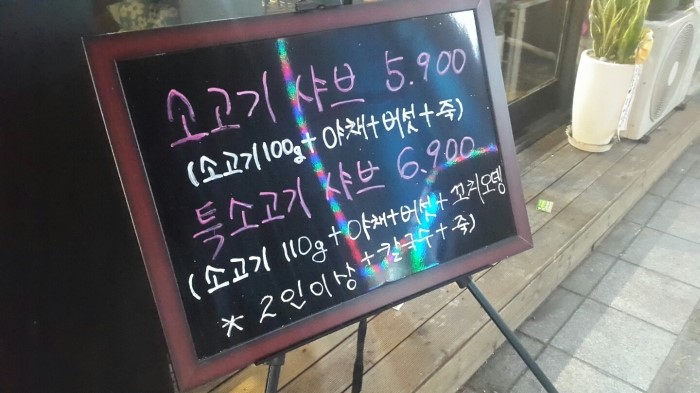 소고기 샤브 5.900
(소고기100g+야채+버섯+죽)
특소고기 샤브 6.900
(소고기 110g+야채+버섯+꼬리오뎅
+칼국수+죽)
* 2인이상